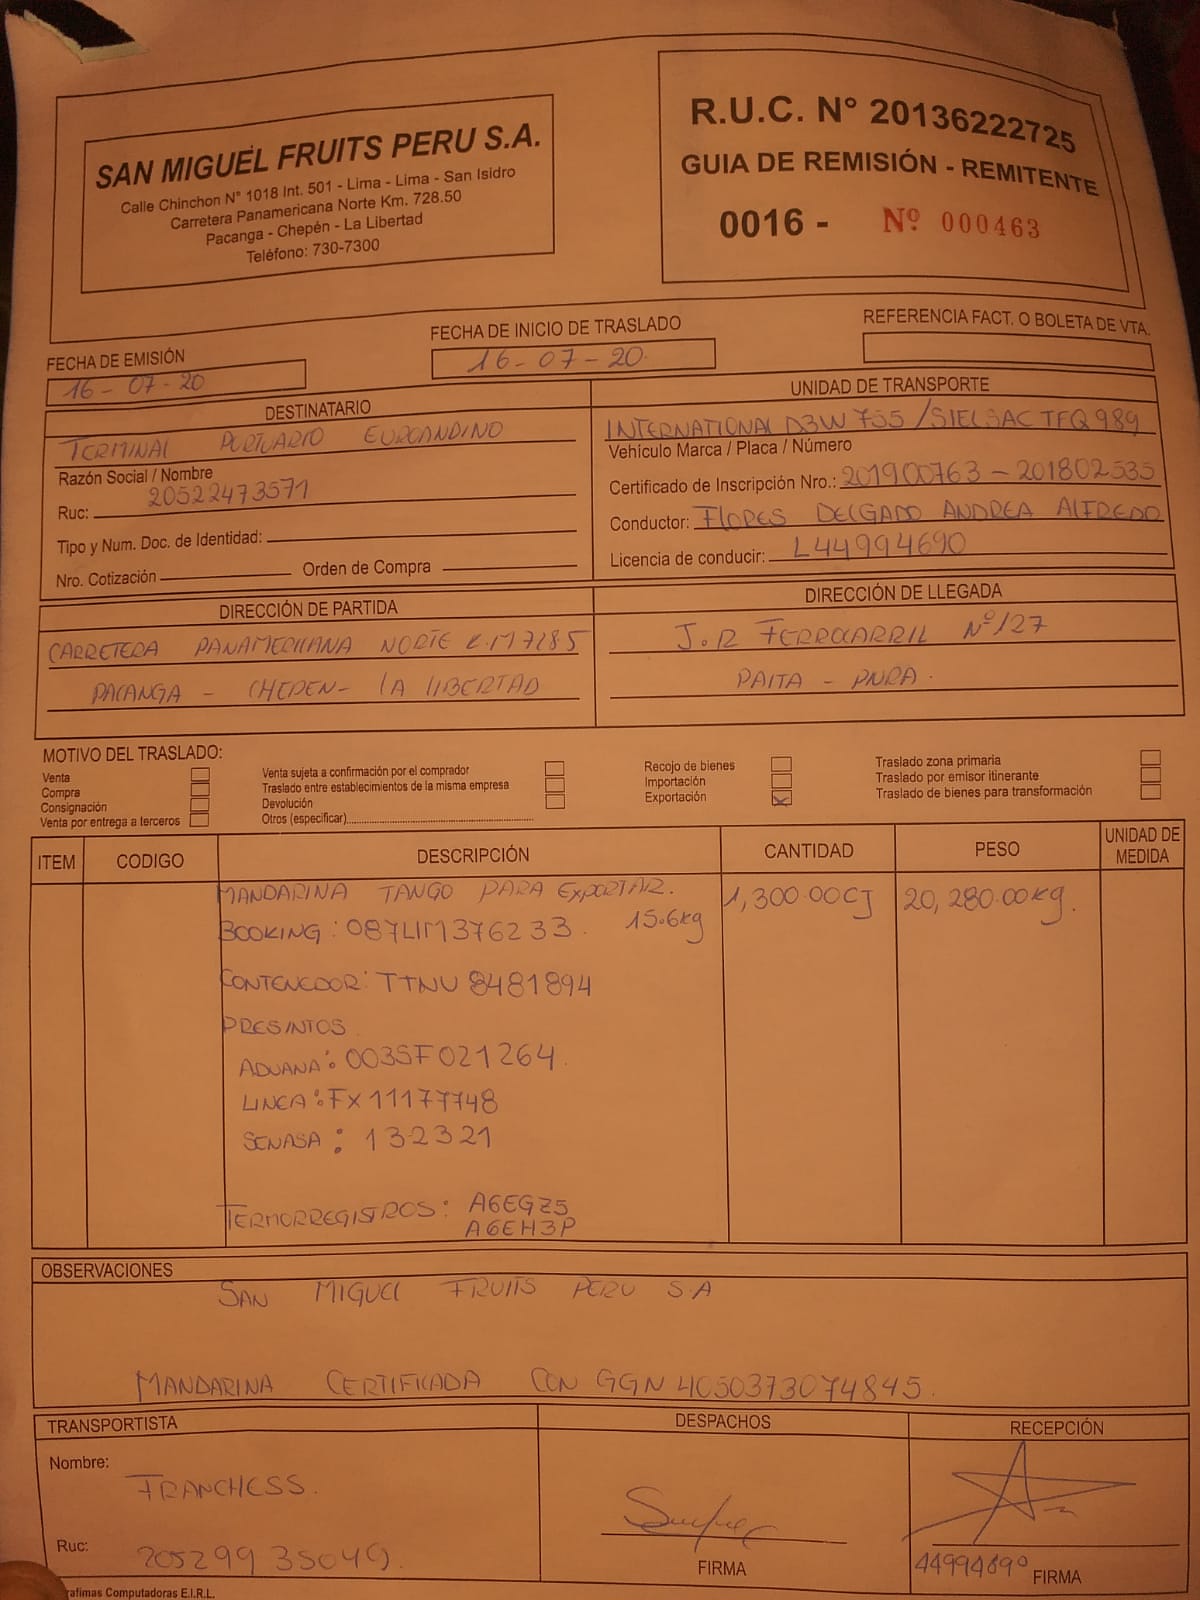 SAN MIGUEL FRUITS PERU S.A.
Calle Chinchon N° 1018 Int. 501 - Lima - Lima - San Isidro
Carretera Panamericana Norte Km. 728.50
Pacanga - Chepén - La Libertad
Teléfono: 730-7300
R.U.C. N° 20136222725
GUIA DE REMISIÓN - REMITENTE
0016 - Nº 000463
FECHA DE EMISIÓN
16-07-20
FECHA DE INICIO DE TRASLADO
16-07-20.
REFERENCIA FACT. O BOLETA DE VTA.
DESTINATARIO
TERMINAL PORTUARIO EUROANDINO
Razón Social / Nombre
Ruc: 20522473571
Tipo y Num. Doc. de Identidad:
Nro. Cotización Orden de Compra
UNIDAD DE TRANSPORTE
INTERNATIONAL D3W 755 / SIELSAC TFQ 989
Vehículo Marca / Placa / Número
Certificado de Inscripción Nro.: 201900763 - 201802535
Conductor: FLORES DELGADO ANDREA ALFREDO
Licencia de conducir: L44994690
DIRECCIÓN DE PARTIDA
CARRETERA PANAMERICANA NORTE K.M 7285
PACANGA - CHEPEN - LA LIBERTAD
DIRECCIÓN DE LLEGADA
J.R FERROCARRIL Nº 127
PAITA - PIURA.
MOTIVO DEL TRASLADO:
Venta
Compra
Consignación
Venta por entrega a terceros
Venta sujeta a confirmación por el comprador
Traslado entre establecimientos de la misma empresa
Devolución
Otros (especificar)
Recojo de bienes
Importación
Exportación X
Traslado zona primaria
Traslado por emisor itinerante
Traslado de bienes para transformación
ITEM CODIGO DESCRIPCIÓN CANTIDAD PESO UNIDAD DE MEDIDA
MANDARINA TANGO PARA EXPORTAR. 1,300.00CJ 20,280.00kg.
BOOKING: 087LIM376233. 15.6kg
CONTENEDOR: TTNU 8481894
PRESINTOS
ADUANA: 003SF021264.
LINEA: FX11177748
SENASA: 132321
TERMORREGISTROS: A6EGZ5
A6EH3P
OBSERVACIONES
SAN MIGUEL FRUITS PERU S.A
MANDARINA CERTIFICADA CON GGN 4050373074845.
TRANSPORTISTA
Nombre:
FRANCHESS.
Ruc: 20529935049.
DESPACHOS
FIRMA
RECEPCIÓN
44994690 FIRMA
rafimas Computadoras E.I.R.L.